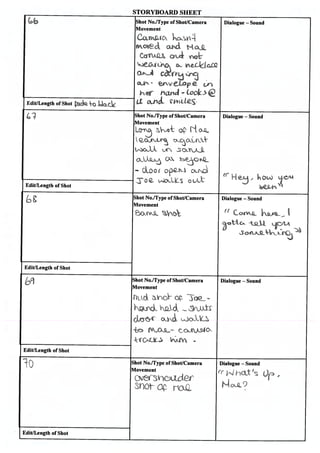 STORYBOARD SHEET
66
Shot No./Type of Shot/Camera
Movement
Dialogue – Sound
Camera hasn't
moved and Mae
comes out not
wearing a necklace
and carrying
an envelope in
her hand - looks @
it and smiles
Edit/Length of Shot fade to black
67
Shot No./Type of Shot/Camera
Movement
Dialogue – Sound
Long shot of Mae
leaning against
wall in same
alley as before
- door opens and
Joe walks out
"Hey, how you
been"
Edit/Length of Shot
68
Shot No./Type of Shot/Camera
Movement
Dialogue – Sound
Same shot
"Come here, I
gotta tell you
something"
Edit/Length of Shot
69
Shot No./Type of Shot/Camera
Movement
Dialogue – Sound
Mid shot of Joe -
hand held - shuts
door and walks
to Mae - camera
tracks him -
Edit/Length of Shot
70
Shot No./Type of Shot/Camera
Movement
Dialogue – Sound
overshoulder
shot of Mae
"What's up,
Mae?
Edit/Length of Shot